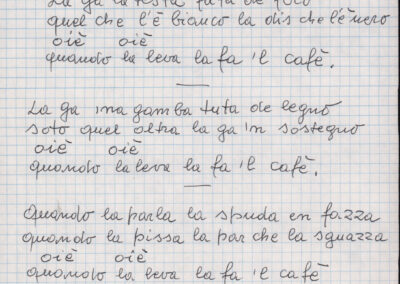 La ga la testa
quel che l'è bianco la dis che l'è nero
oiè oiè
quando la leva la fa 'l cafè.
La ga 'na gamba tuta de legno
soto quel'altra la ga 'n sostegno
oiè oiè
quando la leva la fa 'l cafè.
Quando la parla la spuda en fazza
quando la pissa la par che la sguazza
oiè oiè
quando la leva la fa 'l cafè